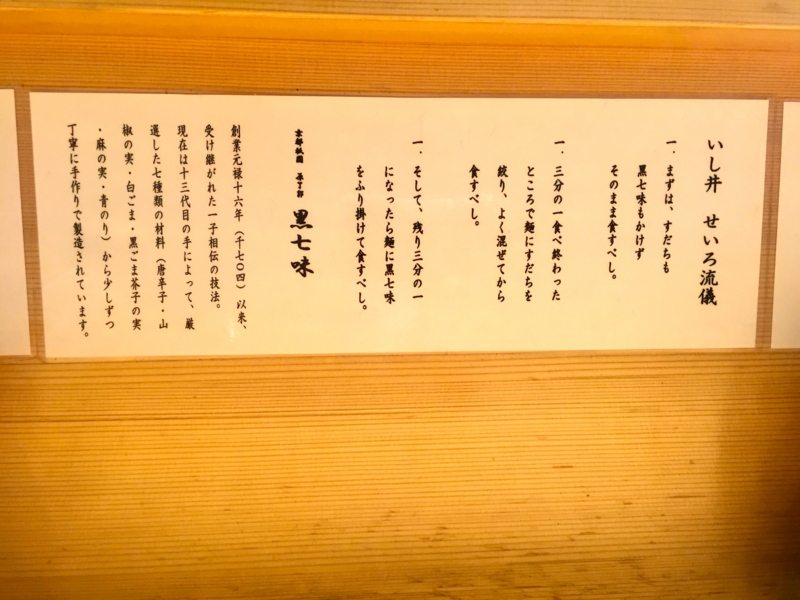 いし井 せいろ流儀
一．まずは、すだちも
黒七味もかけず
そのまま食すべし。
一．三分の一食べ終わった
ところで麺にすだちを
絞り、よく混ぜてから
食すべし。
一．そして、残り三分の一
になったら麺に黒七味
をふり掛けて食すべし。
京都祇園 原了郭 黒七味
創業元禄十六年（千七〇四）以来、
受け継がれた一子相伝の技法。
現在は十三代目の手によって、厳
選した七種類の材料（唐辛子・山
椒の実・白ごま・黒ごま芥子の実
・麻の実・青のり）から少しずつ
丁寧に手作りで製造されています。